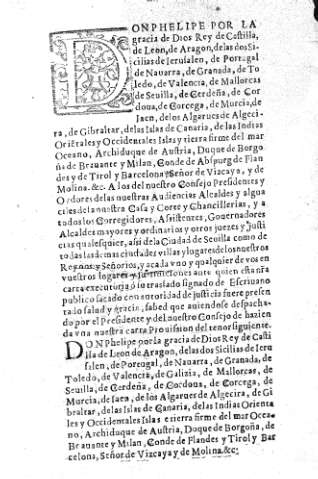 DON PHELIPE POR LA
gracia de Dios Rey de Castilla,
de Leon, de Aragon, delas dos Si-
cilias de Ierusalen, de Portugal
de Nauarra, de Granada, de To
ledo, de Valencia, de Mallorcas
de Seuilla, de Cerdeña, de Cor
doua, de Corcega, de Murcia, de
Iaen, de los Algarues de Algeci
ra, de Gibraltar, delas Islas de Canaria, de las Indias
Oriẽtales y Occidentales Islas y tierra firme del mar
Oceano, Archiduque de Austria, Duque de Borgo
ña de Brauante y Milan, Conde de Abspurg de Flan
des y de Tirol y Barcelona, Señor de Vizcaya, y de
Molina. &c. A los del nuestro Consejo Presidentes y
Oydores delas nuestras Audiencias Alcaldes y algua
ciles de la nuestra Casa y Corte y Chancillerias, y a
todos los Corregidores, Asistentes, Gouernadores
Alcaldes mayores y ordinarios y otros juezes y justi
cias qualesquier, assi de la Ciudad de Seuilla como de
todas las demas ciudades villas y lugares delos nuestros
Reynos y Señorios, y a cada vno y qualquier de vos en
vuestros lugares y juridiciones ante quien esta nr̃a
carta executoria o su traslado signado de Escriuano
publico sacado con autoridad de justicia fuere presen
tada salud y gracia, sabed que auiendose despacha
do por el Presidente y del nuestro Consejo de hazien
da vna nuestra carta Prouision del tenor siguiente.
DON Phelipe por la gracia de Dios Rey de Casti
lla de Leon de Aragon, delas dos Sicilias de Ieru
salen, de Portugal, de Nauarra, de Granada, de
Toledo, de Valencia, de Galizia, de Mallorcas, de
Seuilla, de Cerdeña, de Cordoua, de Corcega, de
Murcia, de Iaen, de los Algarues de Algecira, de Gi
braltar, delas Islas de Canaria, delas Indias Oriente
les y Occidentales Islas e tierra firme del mar Ocea
no, Archiduque de Austria, Duque de Borgoña, de
Brauante y Milan, Conde de Flandes y Tirol y Bar
celona, Señor de Vizcaya y de Molina. &c.